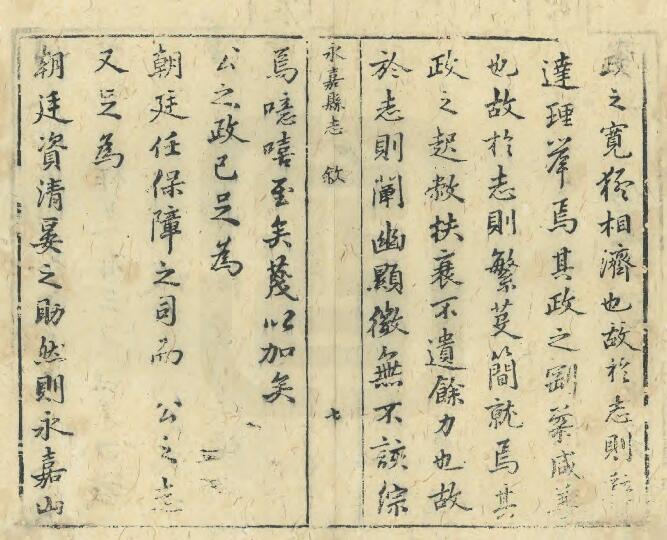 政之寬猛相濟也故於志則
達理舉焉其政之剛柔咸
也故於志則繁芟簡就焉其
政之起敝扶衰不遺餘力也故
於志則闡幽顯微無不該綜
永嘉縣志 敘 七
焉噫嘻至矣蔑以加矣
公之政已足為
朝廷任保障之司而 公之志
又足為
朝廷資清晏之助然則永嘉山